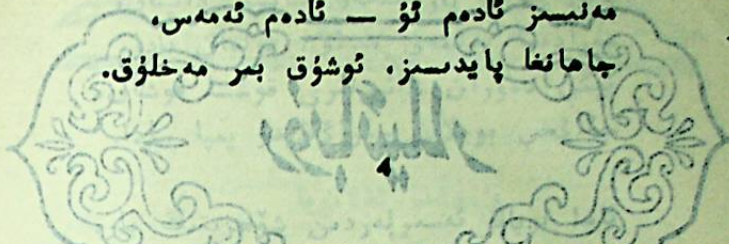 مەنىسىز ئادەم ئۇ — ئادەم ئەمەس،
جاھانغا پايدىسىز، ئوشۇق بىر مەخلۇق.
رۇبائىيلار
4